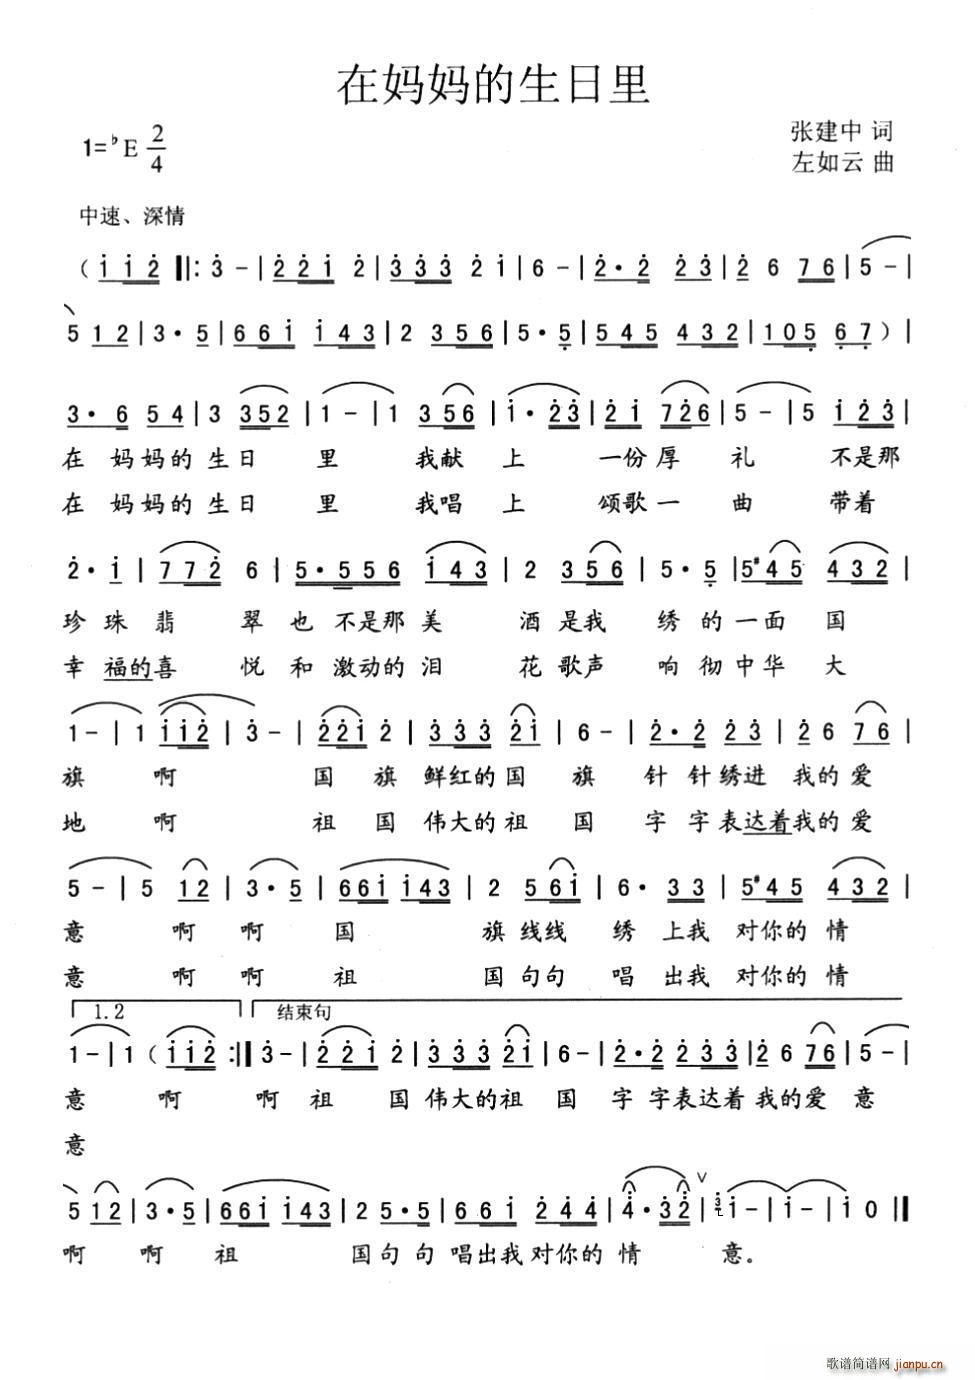 在妈妈的生日里
1=♭E 2/4
张建中 词
左如云 曲
中速、深情
（i̇ i̇ 2̇ ‖: 3̇ - | 2̇ 2̇ i̇ 2̇ | 3̇ 3̇ 3̇ 2̇ i̇ | 6 - | 2̇ · 2̇ 2̇ 3̇ | 2̇ 6 7 6 | 5 - |
5 1 2 | 3 · 5 | 6 6 i̇ i̇ 4 3 | 2 3 5 6 | 5 · 5̣ | 5 4 5 4 3 2 | 1 0 5̣ 6̣ 7̣ ）|
3 · 6 5 4 | 3 3 5 2 | 1 - | 1 3 5 6 | i̇ · 2̇ 3̇ | 2̇ i̇ 7 2̇ 6 | 5 - | 5 i̇ 2̇ 3̇ |
在 妈 妈 的 生 日 里 我 献 上 一 份 厚 礼 不 是 那
在 妈 妈 的 生 日 里 我 唱 上 颂 歌 一 曲 带 着
2̇ · i̇ | 7 7 2̇ 6 | 5 · 5 5 6 | i̇ 4 3 | 2 3 5 6 | 5 · 5̣ | 5 #4 5 4 3 2 |
珍 珠 翡 翠 也 不 是 那 美 酒 是 我 绣 的 一 面 国
幸 福 的 喜 悦 和 激 动 的 泪 花 歌 声 响 彻 中 华 大
1 - | 1 i̇ i̇ 2̇ | 3̇ - | 2̇ 2̇ i̇ 2̇ | 3̇ 3̇ 3̇ 2̇ i̇ | 6 - | 2̇ · 2̇ 2̇ 3̇ | 2̇ 6 7 6 |
旗 啊 国 旗 鲜 红 的 国 旗 针 针 绣 进 我 的 爱
地 啊 祖 国 伟 大 的 祖 国 字 字 表 达 着 我 的 爱
5 - | 5 1 2 | 3 · 5 | 6 6 i̇ i̇ 4 3 | 2 5 6 i̇ | 6 · 3 3 | 5 #4 5 4 3 2 |
意 啊 啊 国 旗 线 线 绣 上 我 对 你 的 情
意 啊 啊 祖 国 句 句 唱 出 我 对 你 的 情
1.2 结束句
1 - | 1（i̇ i̇ 2̇ :‖ 3̇ - | 2̇ 2̇ i̇ 2̇ | 3̇ 3̇ 3̇ 2̇ i̇ | 6 - | 2̇ · 2̇ 2̇ 3̇ 3̇ | 2̇ 6 7 6 | 5 - |
意 啊 啊 祖 国 伟 大 的 祖 国 字 字 表 达 着 我 的 爱 意
意
5 1 2 | 3 · 5 | 6 6 i̇ i̇ 4 3 | 2 5 · 5 | 6 6 i̇ 2̇ 4̇ 4̇ | 4̇ · 3̇ 2̇ ∨ | 3̇ i̇ - | i̇ - | i̇ 0 ‖
啊 啊 祖 国 句 句 唱 出 我 对 你 的 情 意。
歌谱简谱网 jianpu.cn